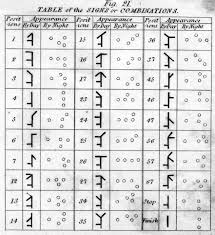 Fig. 21.
TABLE of the SIGNS or COMBINATIONS.
Posit ions Appearance Posit ions Appearance Posit ions Appearance
By Day By Night By Day By Night By Day By Night
1 15 36
2 16 37
3 17 45
4 23 46
5 24 47
6 25 56
7 26 57
12 27 67
13 34 Stop
14 35 Finish